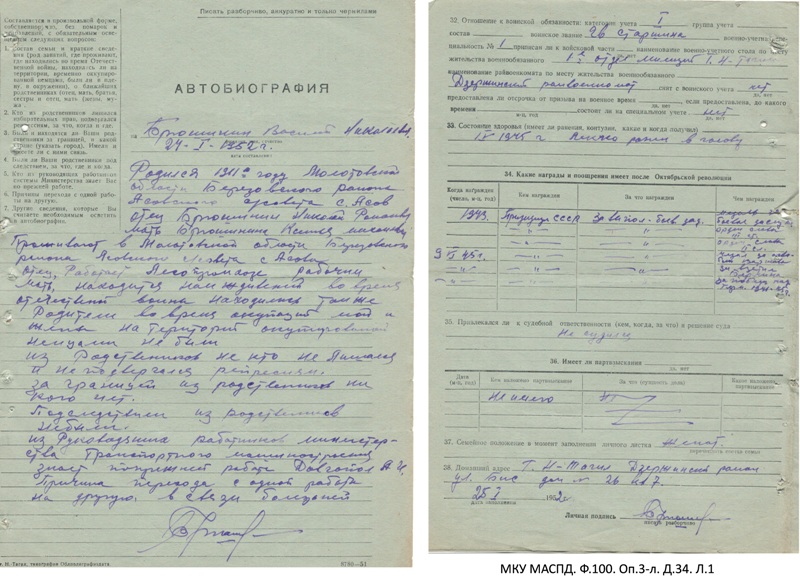 Писать разборчиво, аккуратно и только чернилами
Составляется в произвольной форме,
собственноручно, без помарок и
с обязательным освещением
следующих вопросов:
1. Состав семьи и краткие сведения
(род занятий, где проживают,
где находились во время Отечественной
войны, находились ли на
территории, временно оккупированной
немцами, были ли в плену
и окружении), о ближайших
родственниках (отец, мать, братья,
сестры и отец, мать (жены, мужа).
2. Кто из родственников лишался
избирательных прав, подвергался
репрессиям, за что, когда и где.
3. Были и находятся ли Ваши родственники
за границей, в какой
стране (указать город). Имеете ли
Вы связь с ними.
4. Были ли Ваши родственники под
следствием, за что, где и когда.
5. Кто из руководящих работников
системы Министерства знает Вас
по прежней работе.
6. Причины перехода с одной работы
на другую.
7. Другие сведения, которые Вы
считаете необходимым осветить
в автобиографии.
АВТОБИОГРАФИЯ
Брюшинин Василий Николаевич
24-I-1952 г.
дата составления
Родился 1911 году Молотовской
области Березовского района
Асовского с/совета с. Асов
отец Брюшинин Николай
мать Брюшинина
Проживают в Молотовской области Березовского
района Асовского с/совета с Асово
отец, Работает рабочим
мать, находится на иждивении во время
отечественой войны находились там же
Родители во время окупаций мои и
жены на територий окупированой
немцами не были
из Родственников не кто не лишался
и не подвергался репресиям.
за границей из родственников ни
кого нет.
Подследствием из родственников
небыли.
из Руководящих работников министерства
Транспортного машиностроения
знает по прежней работе Довгопол
Причина перехода с одной работы
на другую в связи болезней
г. Н-Тагил, типография Облполиграфиздата.
32. Отношение к воинской обязанности: категория учета I группа учета
состав воинское звание гв старшина военно-учетная специальность
№ 1 приписан ли к войсковой части наименование военно-учетного стола по месту
жительства военнообязанного 1е отдел милиций г. Н-Тагил
наименование райвоенкомата по месту жительства военнообязанного
Дзержинский райвоенкомат снят с воинского учета нет
да, нет
предоставлена ли отсрочка от призыва на военное время да, нет, если предоставлена, до какого
времени м-ц, год состоит ли на специальном учете нет
да, нет
33. Состояние здоровья (имеет ли ранения, контузии, какие и когда получил)
1945 г легко ранен в голову
34. Какие награды и поощрения имеет после Октябрьской революции
Когда награжден
(число, м-ц, год)
Кем награжден
За что награжден
Чем награжден
1943 Президиум СССР За выпол. боев. зад.
боевые заслуги
орден слава
III ст.
орден слава
II ст.
9 45 г.
за взятие
Берлина
за победу над
35. Привлекался ли к судебной ответственности (кем, когда, за что) и решение суда
Не судился
36. Имеет ли партвзыскания
да, нет
Дата
(м-ц, год)
Кем наложено партвзыскание
За что (сущность дела)
Какое наложено
партвзыскание
Не имею
37. Семейное положение в момент заполнения личного листка Женат
перечислить состав семьи
38. Домашний адрес г. Н-Тагил Дзержинский район
ул. дом № 26 кв 7.
25 I 1952
дата заполнения
Личная подпись
писать разборчиво
МКУ МАСПД. Ф.100. Оп.3-л. Д.34. Л.1